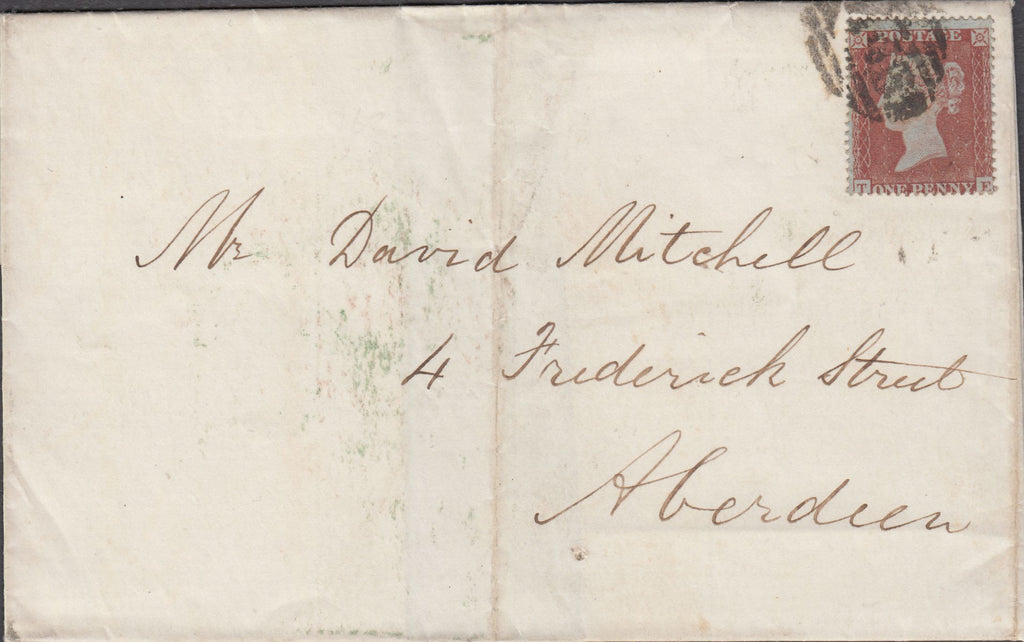 POSTAGE
T ONE PENNY E
Mr David Mitchell
4 Frederick Street
Aberdeen